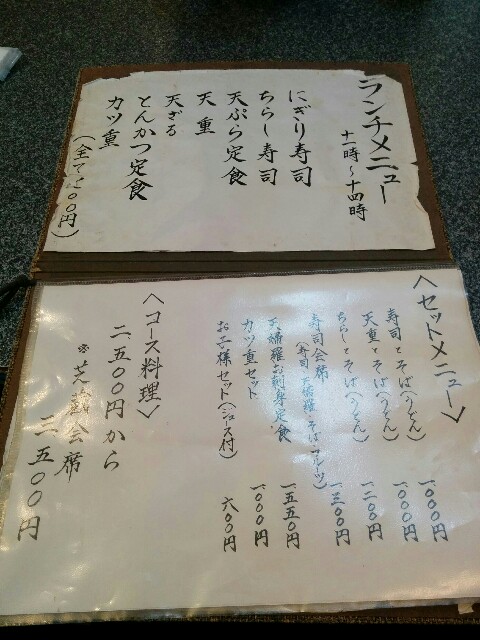 ランチメニュー
十一時~十四時
にぎり寿司
ちらし寿司
天ぷら定食
天重
天ざる
とんかつ定食
カツ重
(全て 00円)
〈セットメニュー〉
寿司とそば(うどん) 一、000円
天重とそば(うどん) 一、000円
ちらしとそば(うどん) 一、二00円
寿司会席 一、三00円
(寿司・天婦羅・そば・フルーツ)
天婦羅お刺身定食 一、五五0円
カツ重セット 一、000円
お子様セット(ジュース付) 六00円
〈コース料理〉
二、五00円から
※芝 会席
三、五00円